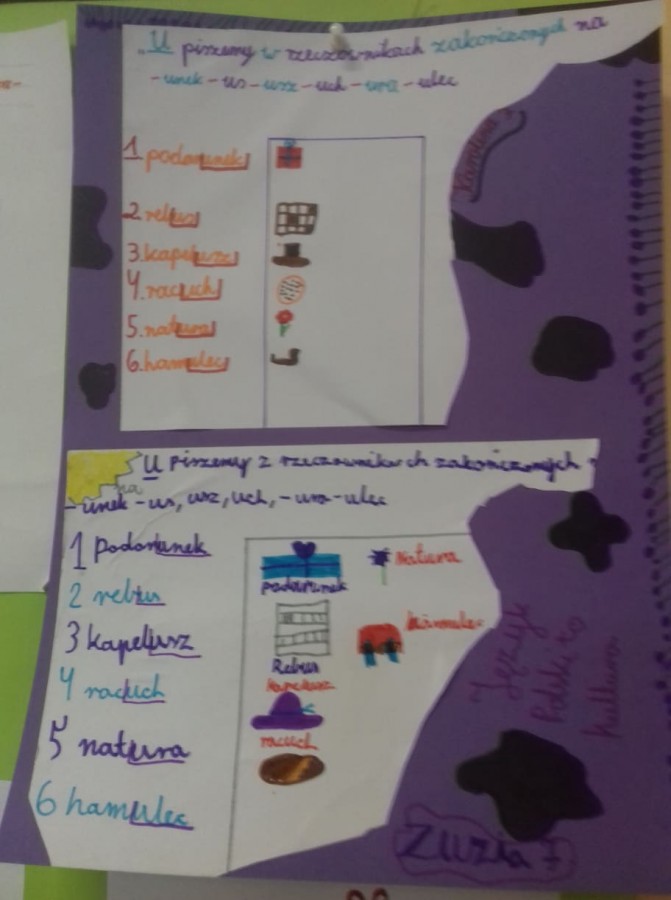 „U piszemy w rzeczownikach zakończonych na
-unek -us -usz -uch -ura -ulec
1 podarunek
2. rebus
3. kapelusz
4. racuch
5. natura
6. hamulec
U piszemy z rzeczownikach zakończonych
na
-unek -us, usz, uch, -ura -ulec
1 podarunek
2 rebus
3 kapelusz
4 racuch
5 natura
6 hamulec
podarunek
Natura
Rebus
Kapelusz
racuch
Język
Polski to
kultura
Zuzia